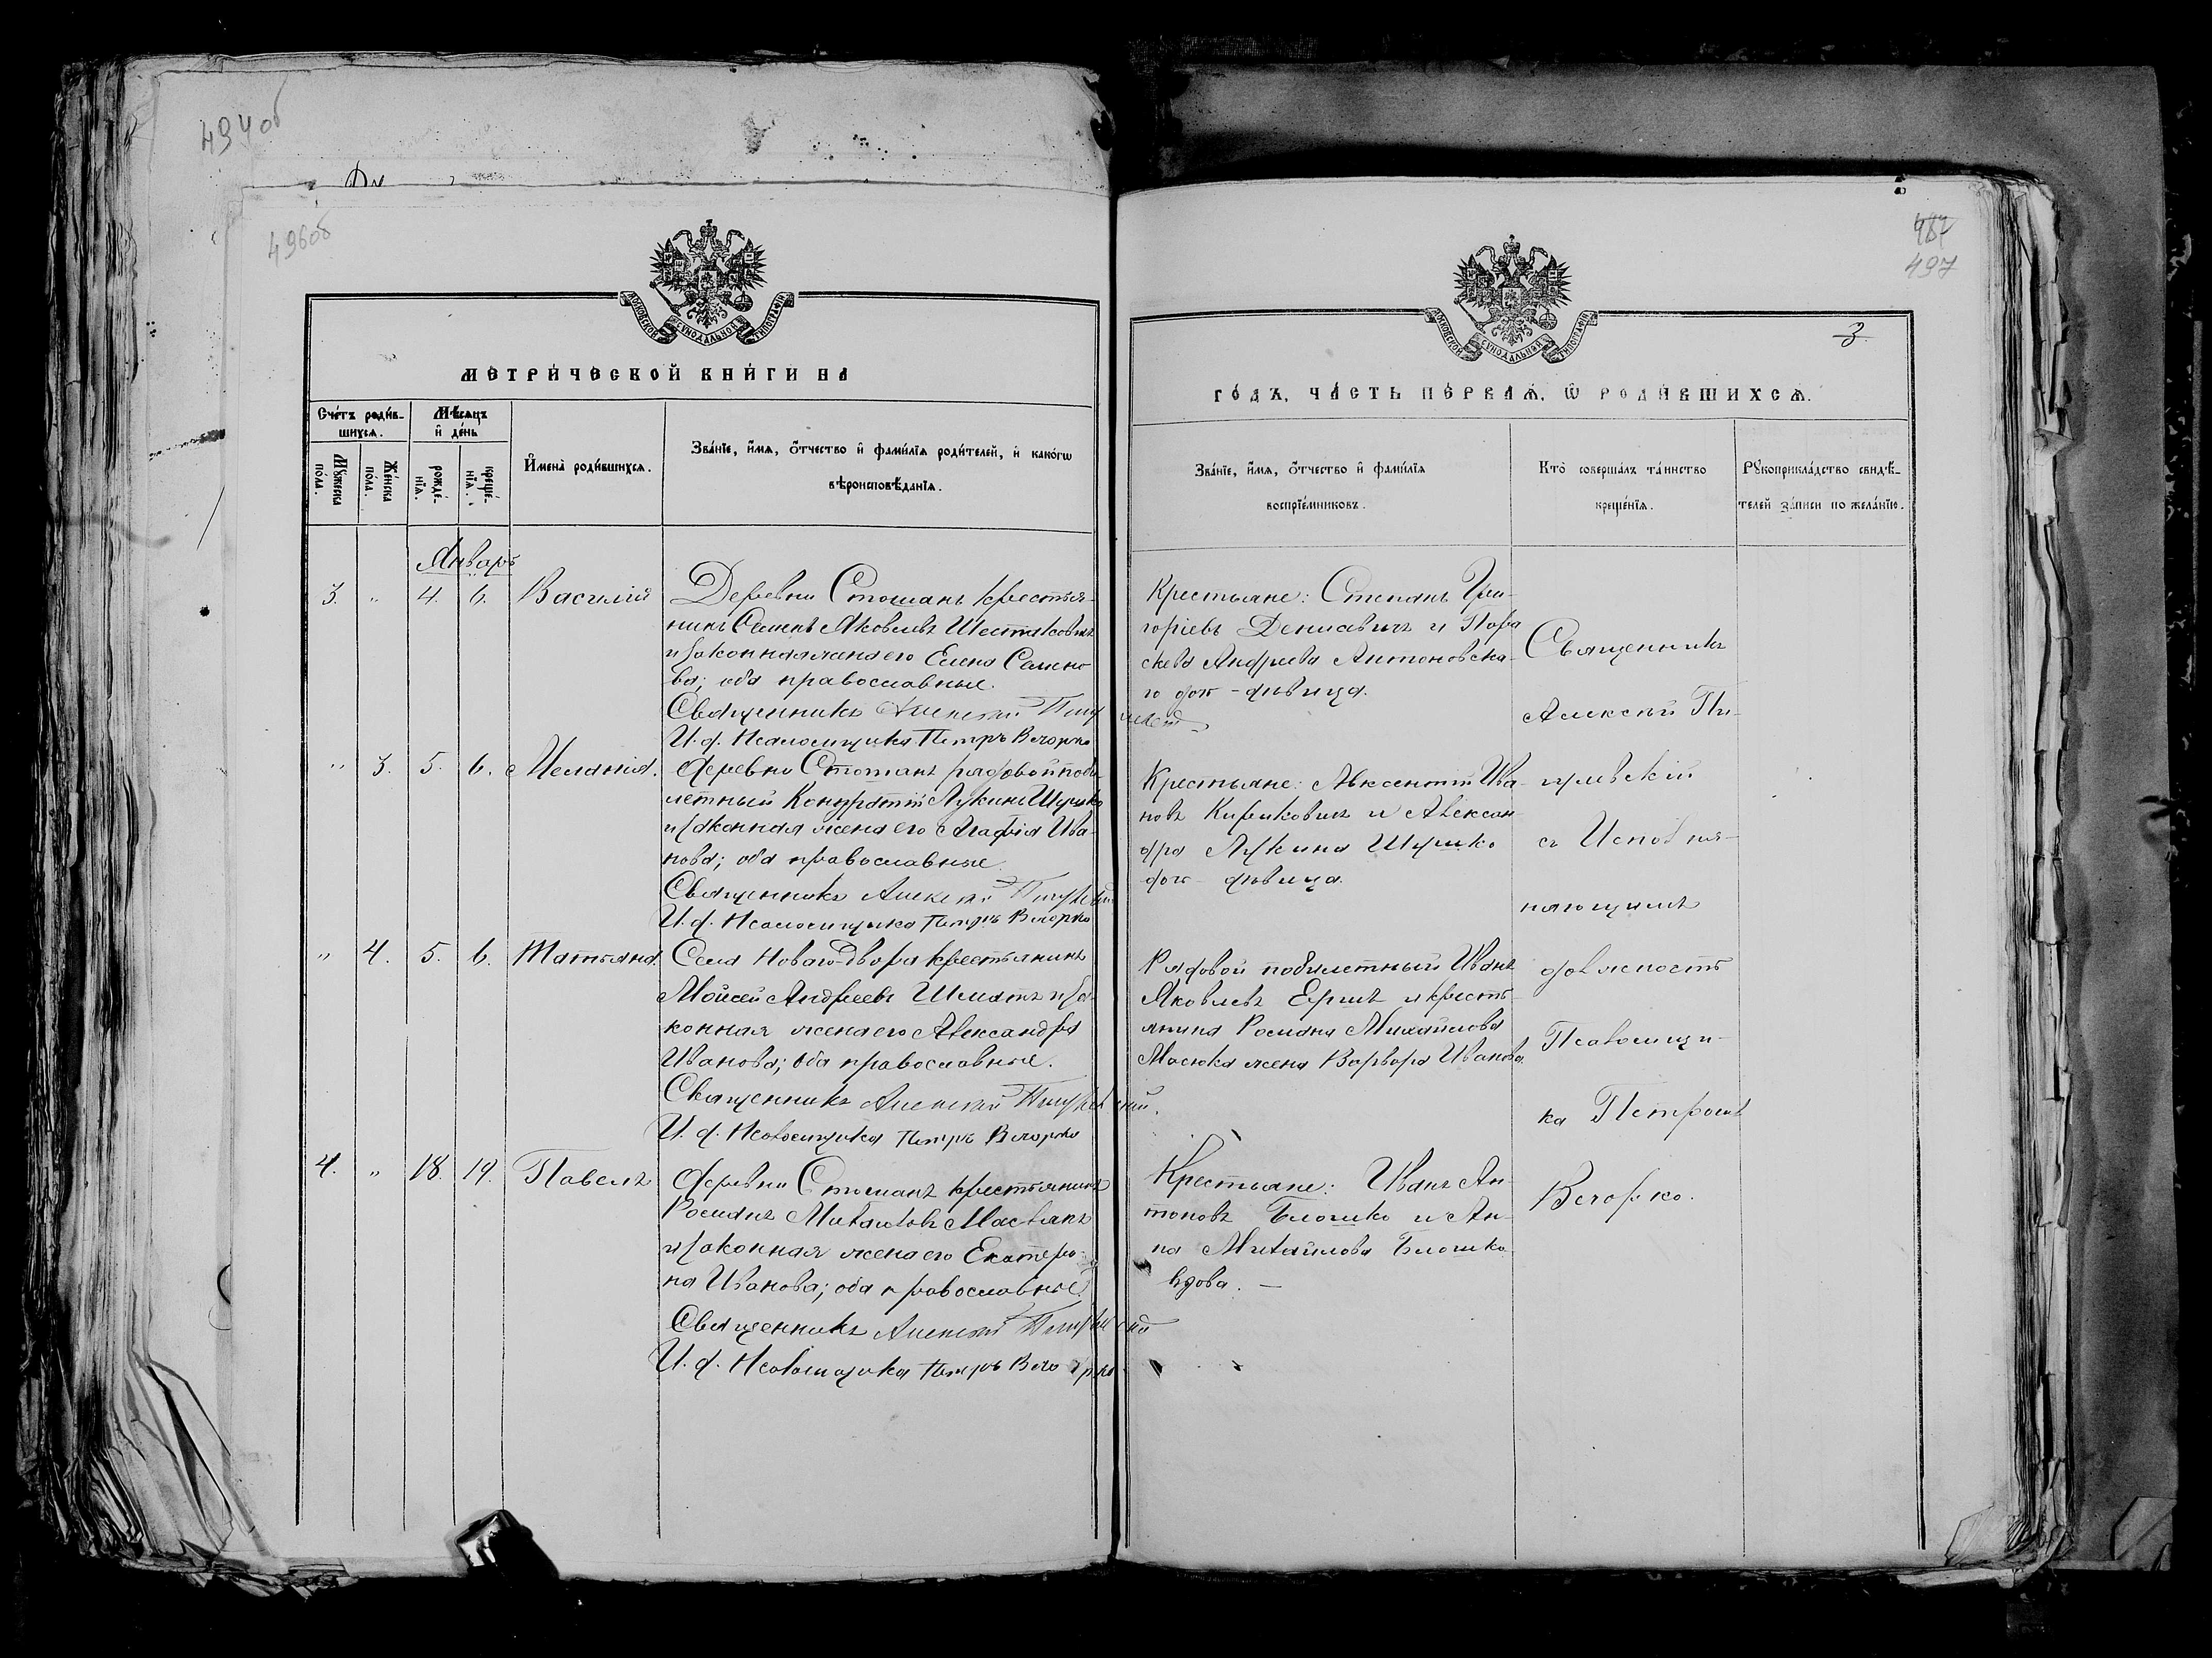 494об
496об
487
497
3.
МОСКОВСКОЙ СѴНОДАЛЬНОЙ ТИПОГРАФІИ
МЕТРИ́ЧЕСКОЙ КНИ́ГИ НА
Сче́тъ роди́в-
шихся.
Мѣ́сяцъ
и҆ де́нь
Мꙋ́жеска
по́ла.
Же́нска
по́ла.
рожде́-
нїѧ.
креще́-
нїѧ.
И҆мена̀ роди́вшихсѧ.
Зва́нїе, и҆́мѧ, о҆́тчество и҆ фами́лїѧ роди́телей, и҆ како́гѡ
вѣроисповѣ́данїѧ.
Январь
3. " 4. 6. Василій
Деревни Стошанъ крестья-
нинъ Семенъ Яковлевъ Шестаковичъ
и законная жена его Елена Семено-
ва; оба православные.
Священникъ Алексѣй
И. д. Псаломщика Петръ Вечорко
" 3. 5. 6. Меланія.
Деревни Стошанъ рядовой поби-
летный Кондратій Лукинъ Шушко
и законная жена его Агафія Ива-
нова; оба православные.
Священникъ Алексѣй
И. д. Псаломщика Петръ Вечорко
" 4. 5. 6. Татьяна.
Села Новаго-Двора крестьянинъ
Мойсей Андреевъ Шматъ и за-
конная жена его Александра
Иванова; оба православные.
Священникъ Алексѣй
И. д. Псаломщика Петръ Вечорко
4. " 18. 19. Павелъ
Деревни Стошанъ крестьянинъ
Романъ Михайловъ
и законная жена его Екатери-
на Иванова; оба православные.
Священникъ Алексѣй
И. д. Псаломщика Петръ Вечорко
МОСКОВСКОЙ СѴНОДАЛЬНОЙ ТИПОГРАФІИ
ГО́ДЪ, ЧА́СТЬ ПЕ́РВАѦ, Ѡ҆ РОДИ́ВШИХСѦ.
Зва́нїе, и҆́мѧ, о҆́тчество и҆ фами́лїѧ
воспрїе́мниковъ.
Кто̀ соверша́лъ та́инство
креще́нїѧ.
Рꙋкоприкла́дство свидѣ́-
телей за́писи по жела́нїю.
Крестьяне: Степанъ Гри-
горіевъ Денисевичъ и Пара
скева Андреева Антоновска-
го дочь - дѣвица.
Крестьяне: Авксентій Ива-
новъ Кириковичъ и Алексан-
дра Лукина Шушко
дочь - дѣвица.
Рядовой побилетный Иванъ
Яковлевъ Ершъ и кресть-
янина Романа Михайлова
Масюка жена Варвара Иванова.
Крестьяне: Иванъ Ан-
тоновъ Блошко и Ан-
на Михайлова Блошко
вдова. —
Священникъ
Алексѣй Пи-
съ Исправ-
ляющимъ
должность
Псаломщи-
ка Петромъ
Вечорко.